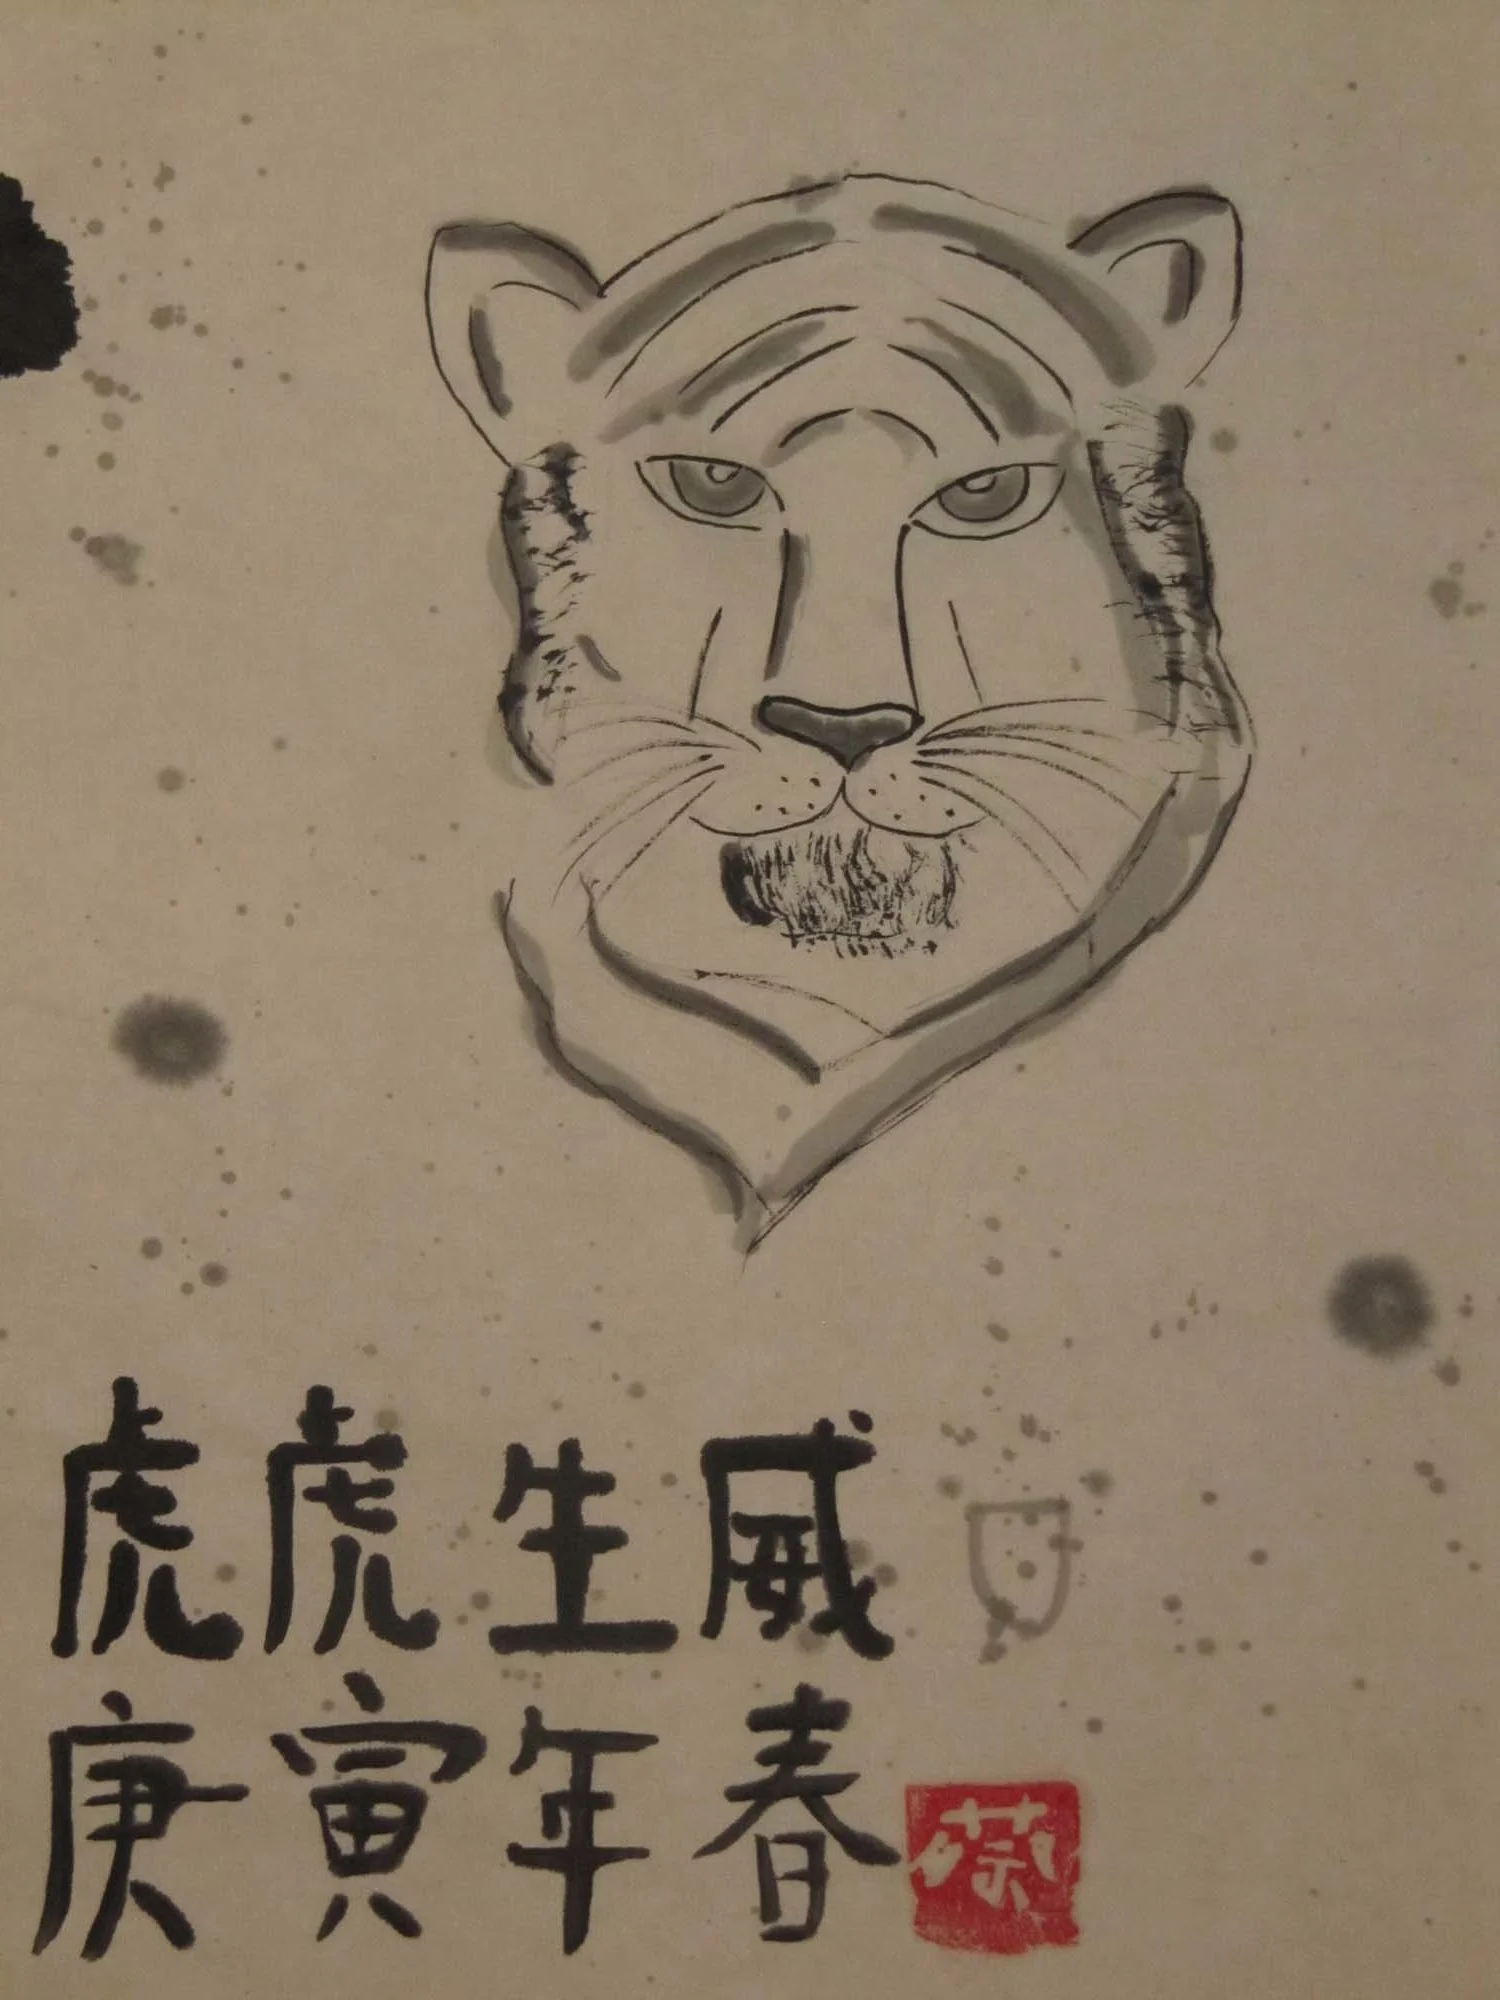 虎虎生威
庚寅年春
蔡